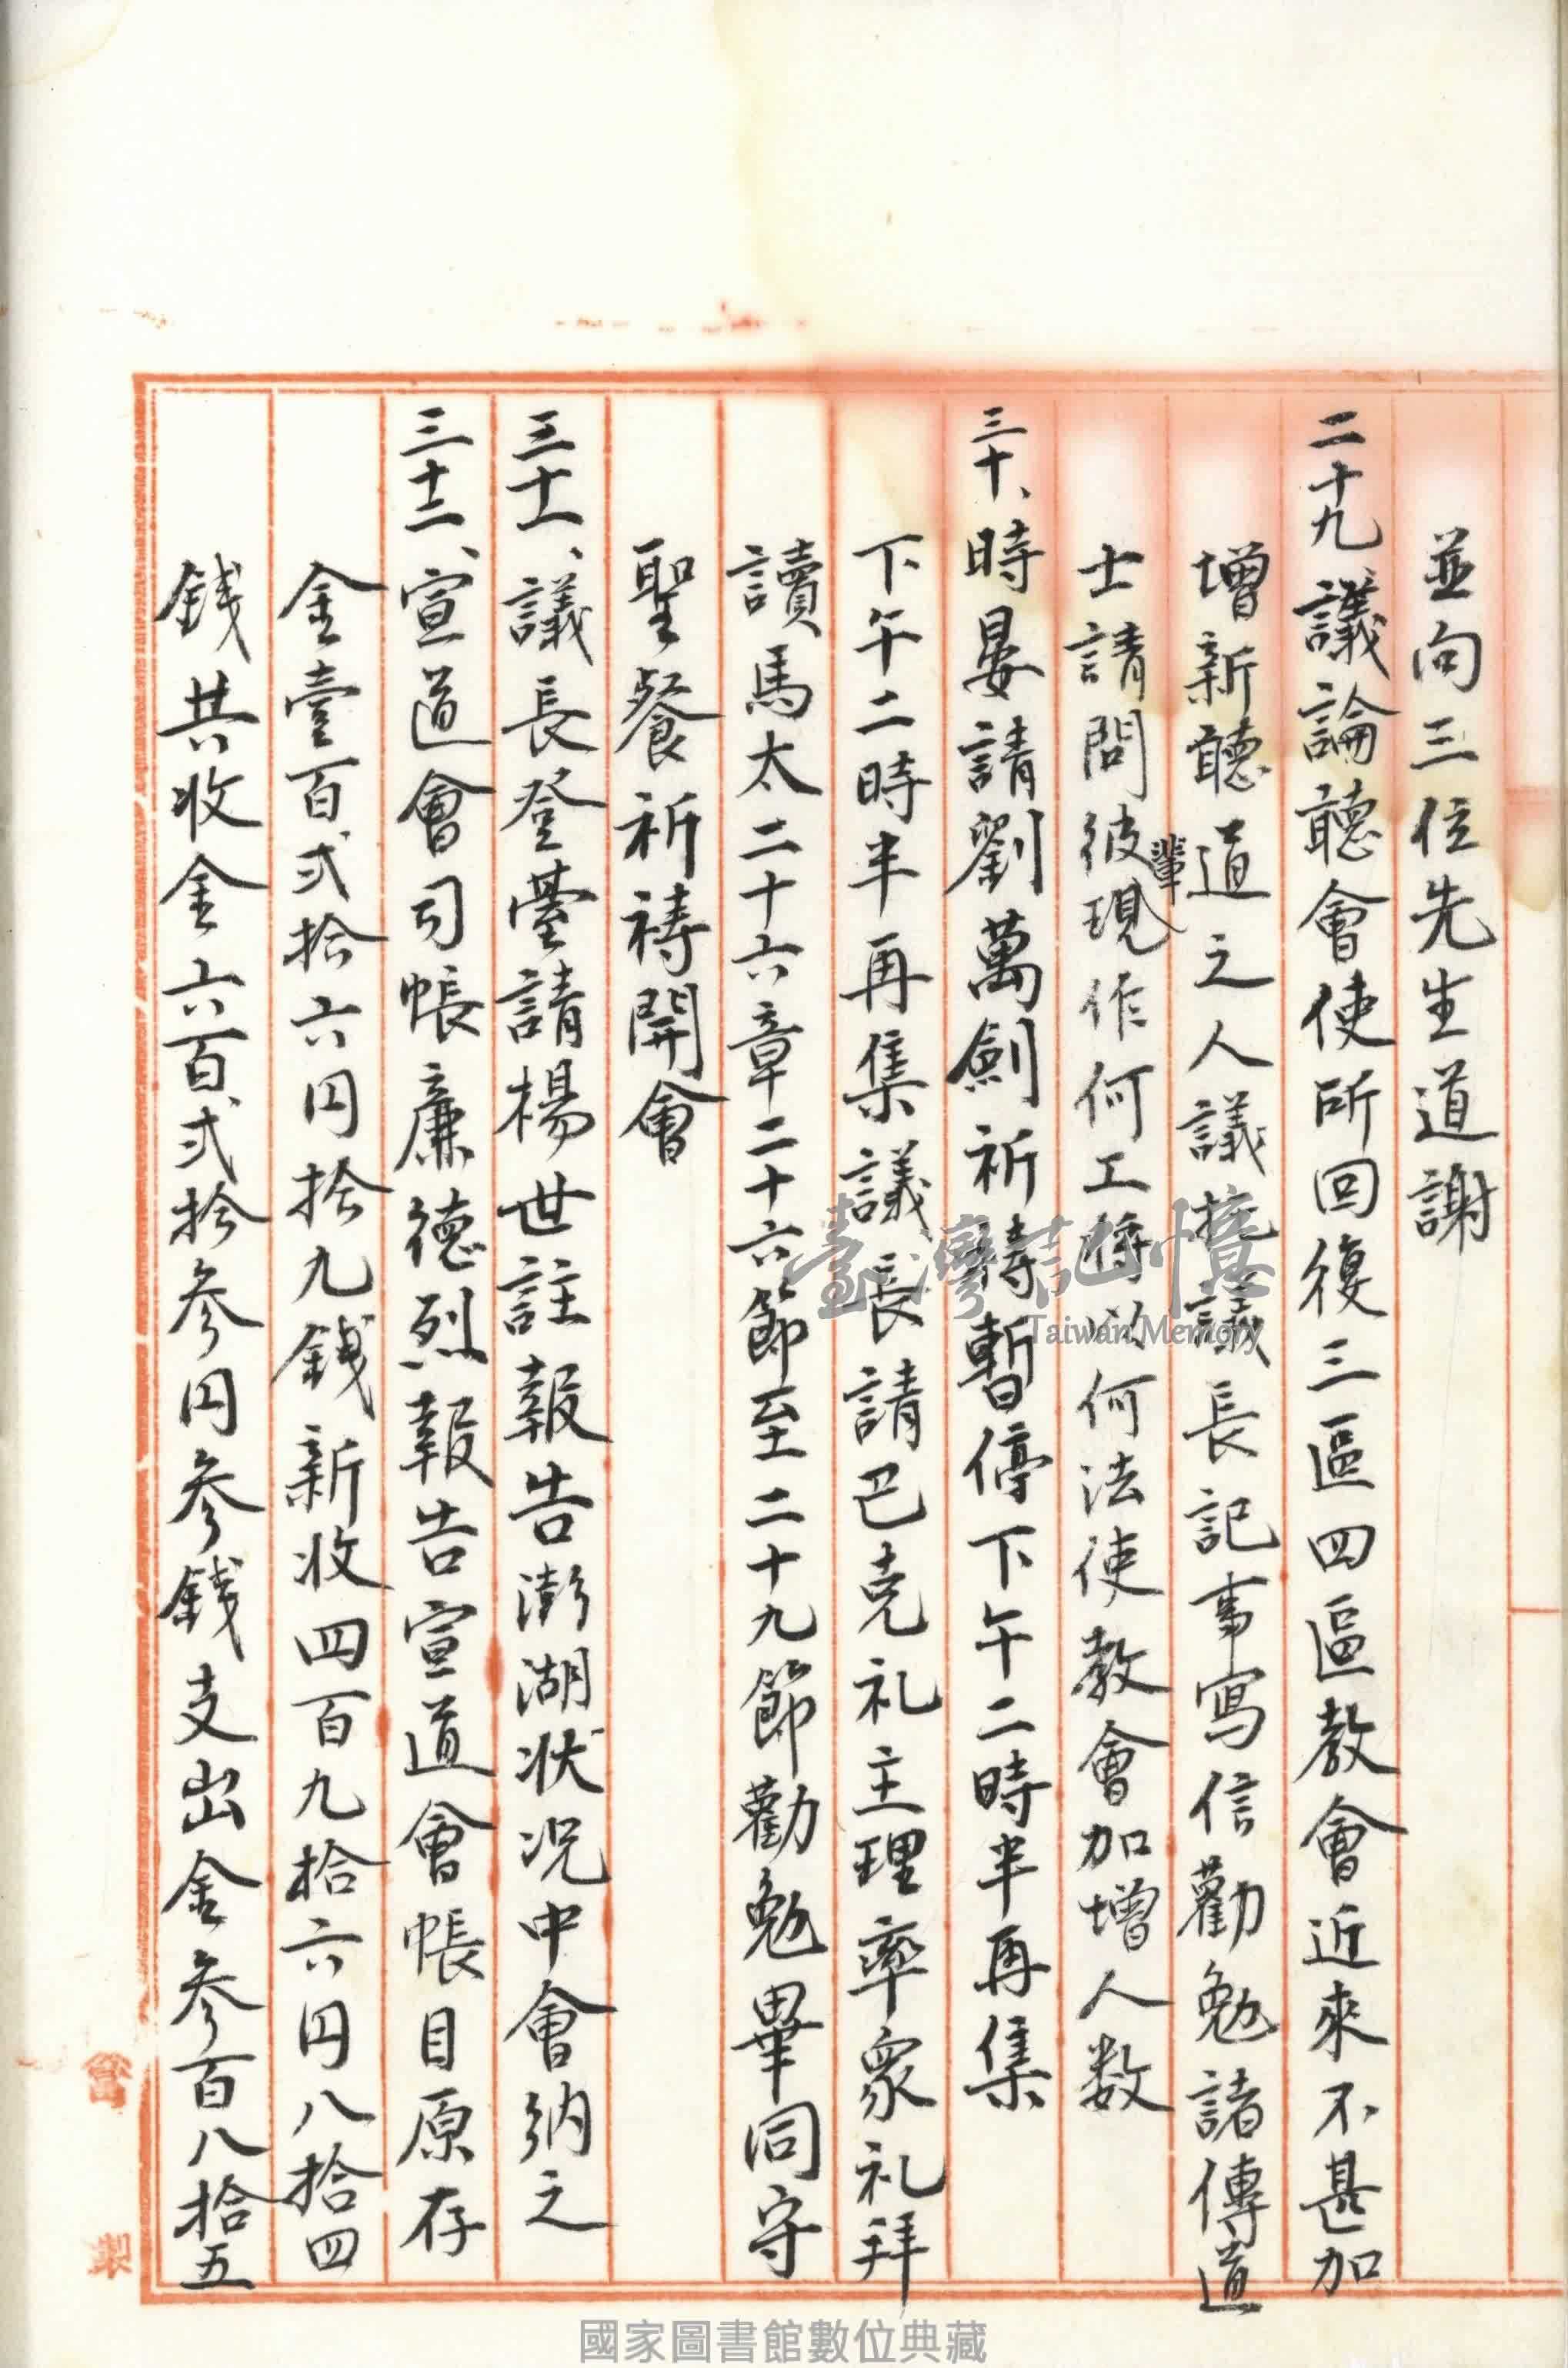 並向三位先生道謝
二十九議論聽會使所回復三區四區教會近來不甚加
增新聽道之人議托議長記事寫信勸勉諸傳道
士請問彼輩現作何工將以何法使教會加增人数
三十、時晏請劉萬劍祈禱暫停下午二時半再集
下午二時半再集議長請巴克礼主理率眾礼拜
讀馬太二十六章二十六節至二十九節勸勉畢同守
聖餐祈禱開會
三十一、議長登臺請楊世註報告澎湖状况中會納之
三十二、宣道會司帳廉德烈報告宣道會帳目原存
金壹百弍拾六円拾九錢新收四百九拾六円八拾四
錢共收金六百弍拾参円参錢支出金参百八拾五
臺灣記憶
Taiwan Memory
國家圖書館數位典藏